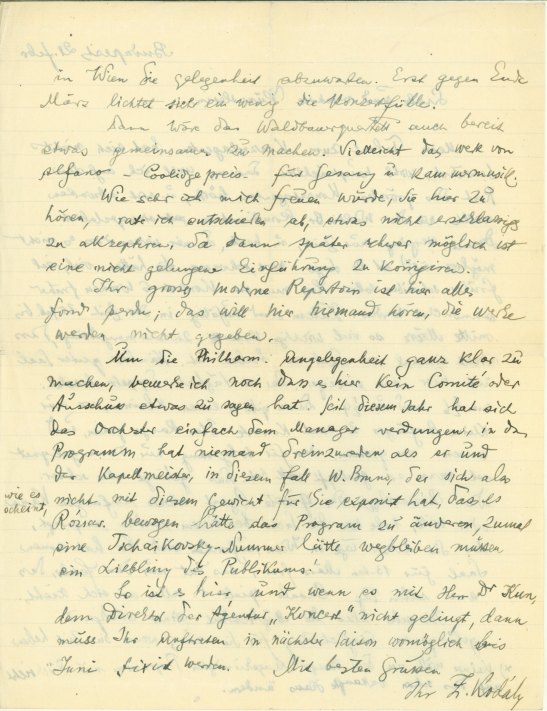 in Wien die gelegenheit abzuwarten. Erst gegen Ende
März lichtet sich ein wenig die Konzertfülle.
Dann wäre das Waldbauerquartett auch bereit
etwas gemeinsames zu machen. Vielleicht das werk von
Alfano – Coolidgepreis – für Gesang u Kammermusik.
Wie sehr ich mich freuen würde, Sie hier zu
hören, rate ich entschieden ab, etwas nicht erstklassiges
zu akzeptiren, da dann später schwer möglich ist
eine nicht gelungene Einführung zu korrigiren.
Ihr grosses moderne Repertoir ist hier alles
fonds perdu, das will hier niemand hören, die werke
werden nicht gegeben.
Um die Philharm. Angelegenheit ganz klar zu
machen, bemerke ich noch dass es hier kein Comité oder
Ausschuss etwas zu sagen hat. Seit diesem Jahr hat sich
das Orchester einfach dem Manager verdungen, in das
Programm hat niemand dreinzureden als er und
der Kapellmeister, in diesem fall W. Bruno, der sich also
wie es scheint,
nicht mit diesem gewicht für Sie exponirt hat, dass es
Rózsav. bewogen hätte das Program zu änderen, zumal
eine Tschaikovsky-Nummer hätte wegbleiben müssen
ein Liebling des Publikums!
So ist es hier und wenn es mit Herr Dr Kun,
dem Direktor der Agentur „Koncert" nicht gelingt, dann
muss Ihr Auftreten in nächster Saison womöglich bis
Juni fixirt werden. Mit besten Grüssen
Ihr Z. Kodály